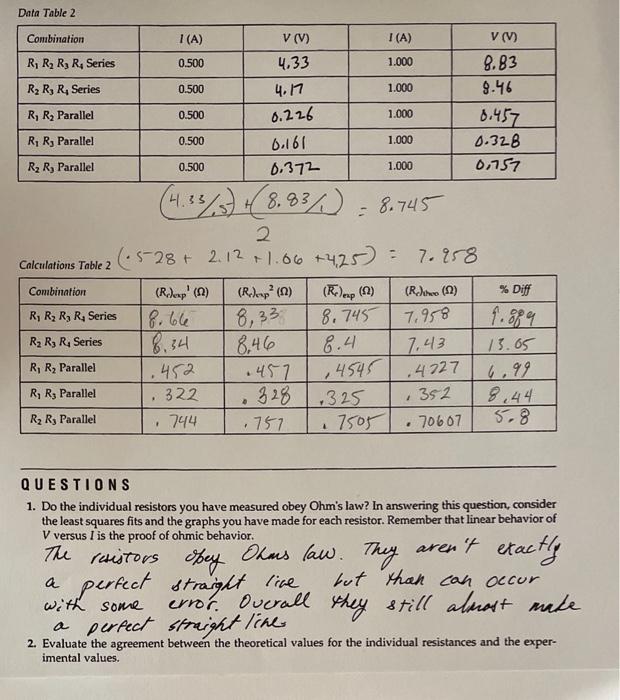 Data Table 2
Combination I (A) V (V) I (A) V (V)
R₁ R₂ R₃ R₄ Series 0.500 4.33 1.000 8.83
R₂ R₃ R₄ Series 0.500 4.17 1.000 8.46
R₁ R₂ Parallel 0.500 0.226 1.000 0.457
R₁ R₃ Parallel 0.500 0.161 1.000 0.328
R₂ R₃ Parallel 0.500 0.372 1.000 0.757
(4.33/.5) + (8.83/1) = 8.745
2
Calculations Table 2 (.528 + 2.12 + 1.06 + 4.25) = 7.958
Combination (Rₑ)exp¹ (Ω) (Rₑ)exp² (Ω) (R̅ₑ)exp (Ω) (Rₑ)theo (Ω) % Diff
R₁ R₂ R₃ R₄ Series 8.66 8.33 8.745 7.958 9.889
R₂ R₃ R₄ Series 8.34 8.46 8.4 7.43 13.05
R₁ R₂ Parallel .452 .457 .4545 .4227 6.99
R₁ R₃ Parallel .322 .328 .325 .352 8.44
R₂ R₃ Parallel .744 .757 .7505 .70607 5.8
QUESTIONS
1. Do the individual resistors you have measured obey Ohm's law? In answering this question, consider
the least squares fits and the graphs you have made for each resistor. Remember that linear behavior of
V versus I is the proof of ohmic behavior.
The resistors obey Ohms law. They aren't exactly
a perfect straight line but than can occur
with some error. Overall they still almost made
a perfect straight line
2. Evaluate the agreement between the theoretical values for the individual resistances and the exper-
imental values.